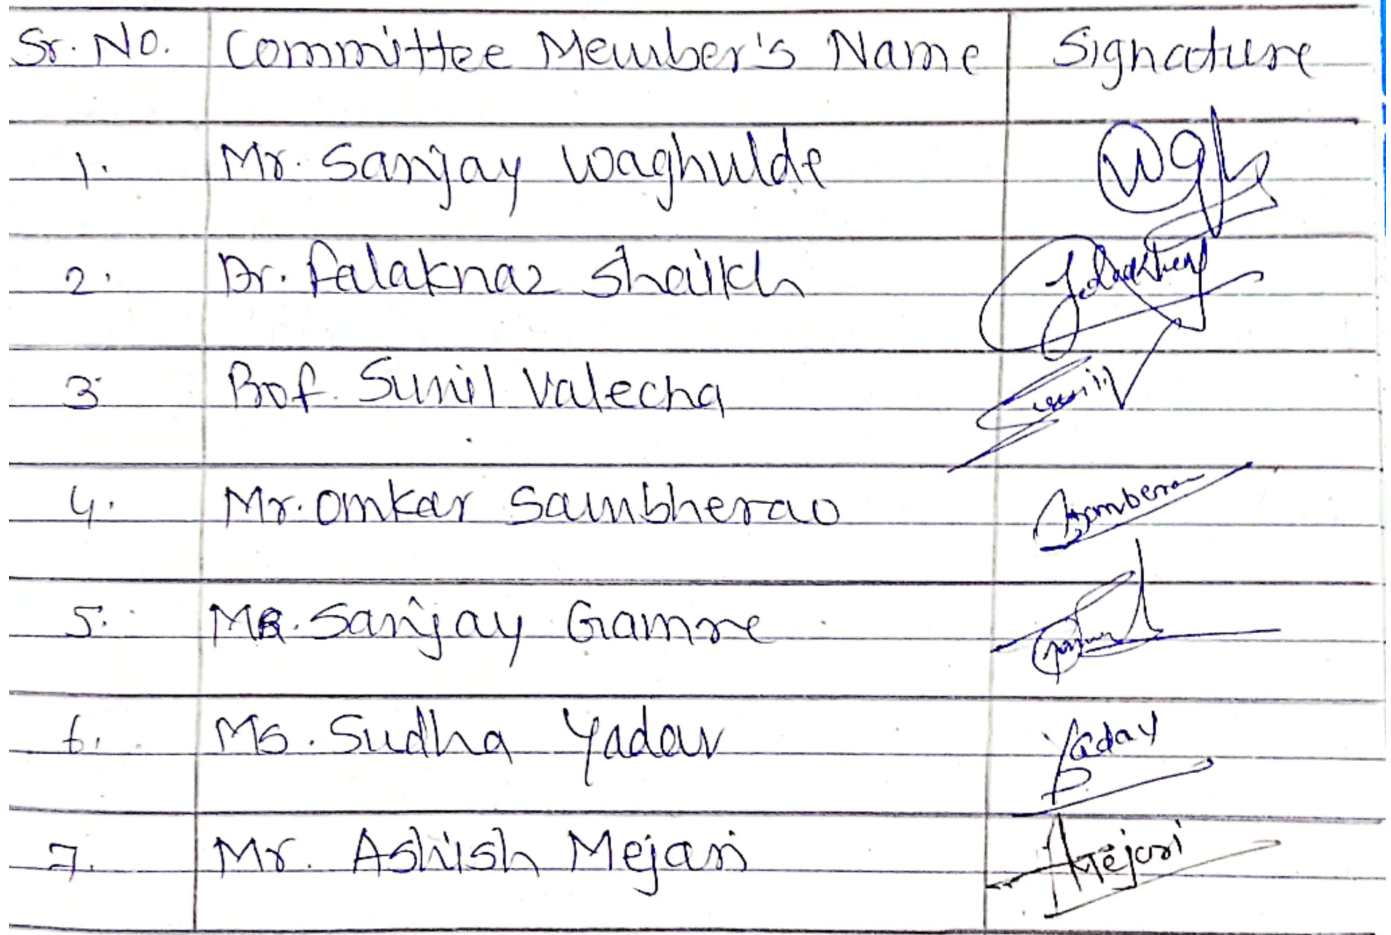 Sr. No. Committee Member's Name Signature
1. Mr. Sanjay Waghulde
2. Dr. Falaknaz Shaikh
3 Prof. Sunil Valecha Sunil
4. Mr. Omkar Sambherao
5. Mr. Sanjay Gamre
6. Ms. Sudha Yadav Yadav
7. Mr. Ashish Mejari Mejari